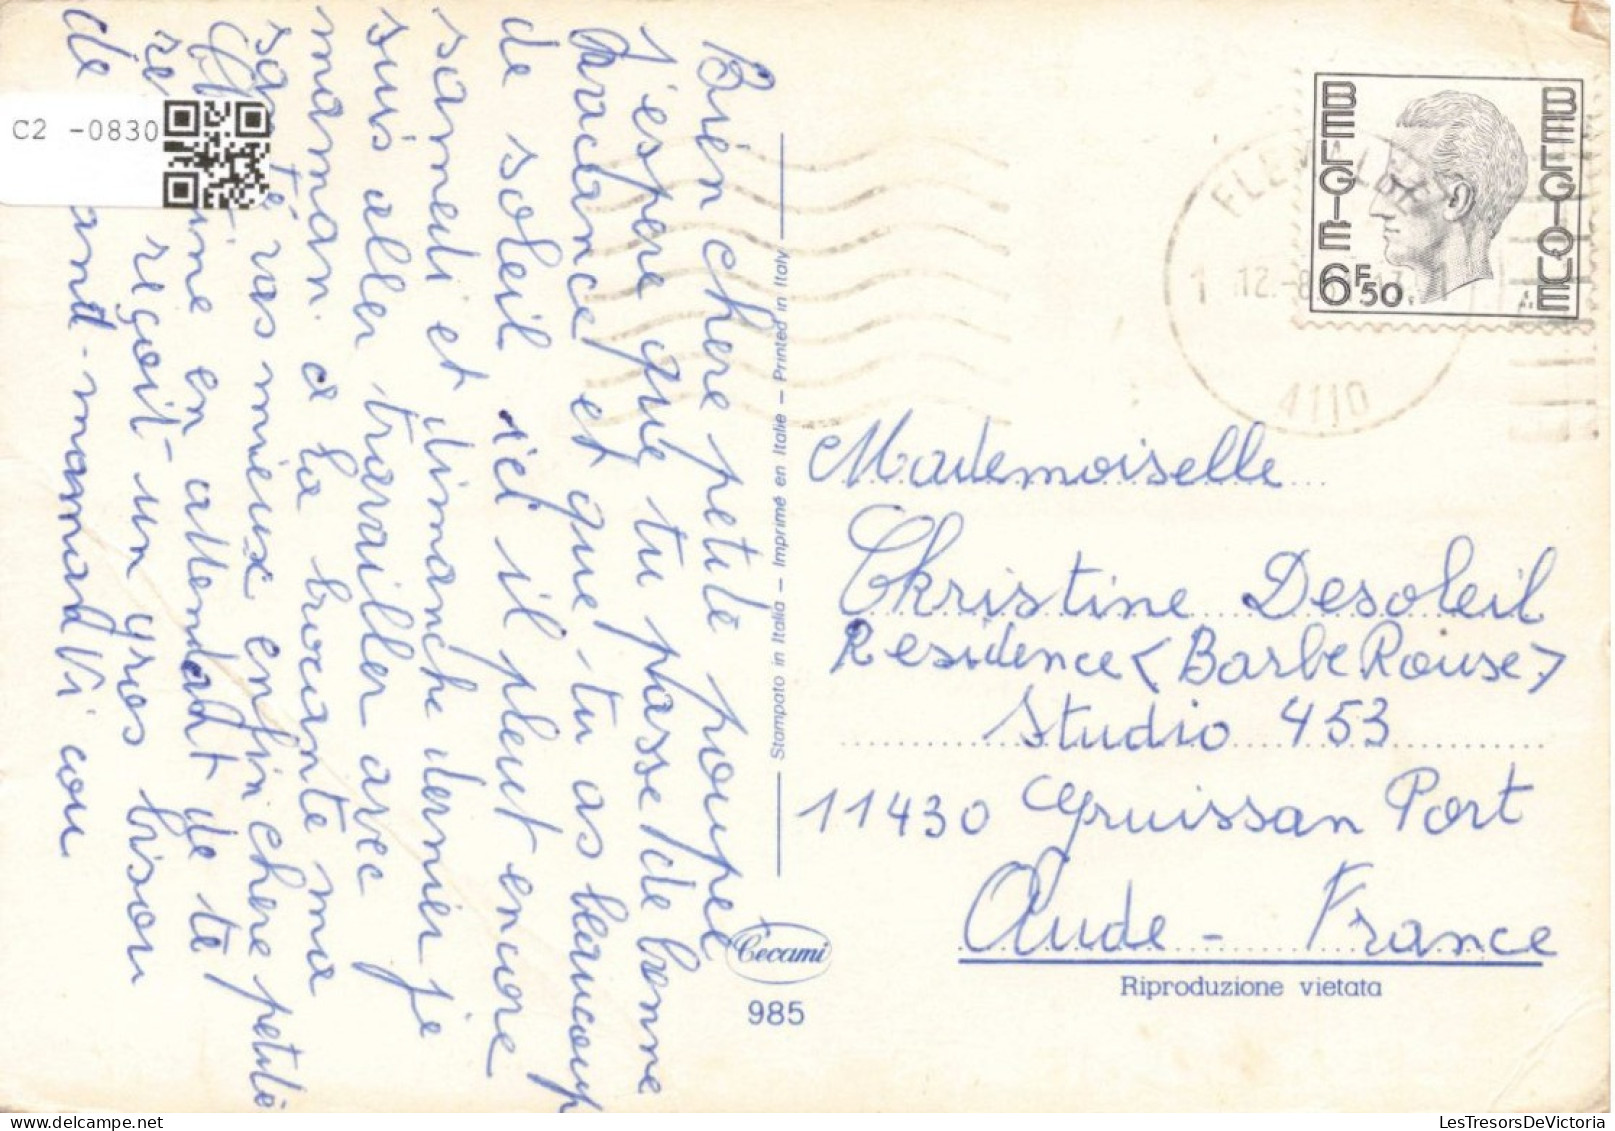 Bien chere petite poupée
j'espere que tu passe de bonne
vacance et que tu as beaucoup
de soleil ici il pleut encore
samedi et dimanche dernier je
suis aller travailler avec
maman a la brocante ma
santé vas mieux enfin chere petite
Christine en attendant de te
reçoit un gros bison
de mamad Vi cou
C2 -0830
Stampato in Italia – Imprimé en Italie – Printed in Italy
Cecami
985
BELGIE BELGIQUE
6F50
FLEMALLE
1 12.-8
4110
Mademoiselle
Christine Desoleil
Residence <BarbeRousse>
Studio 453
11430 Gruissan Port
Aude - France
Riproduzione vietata
LesTresorsDeVictoria